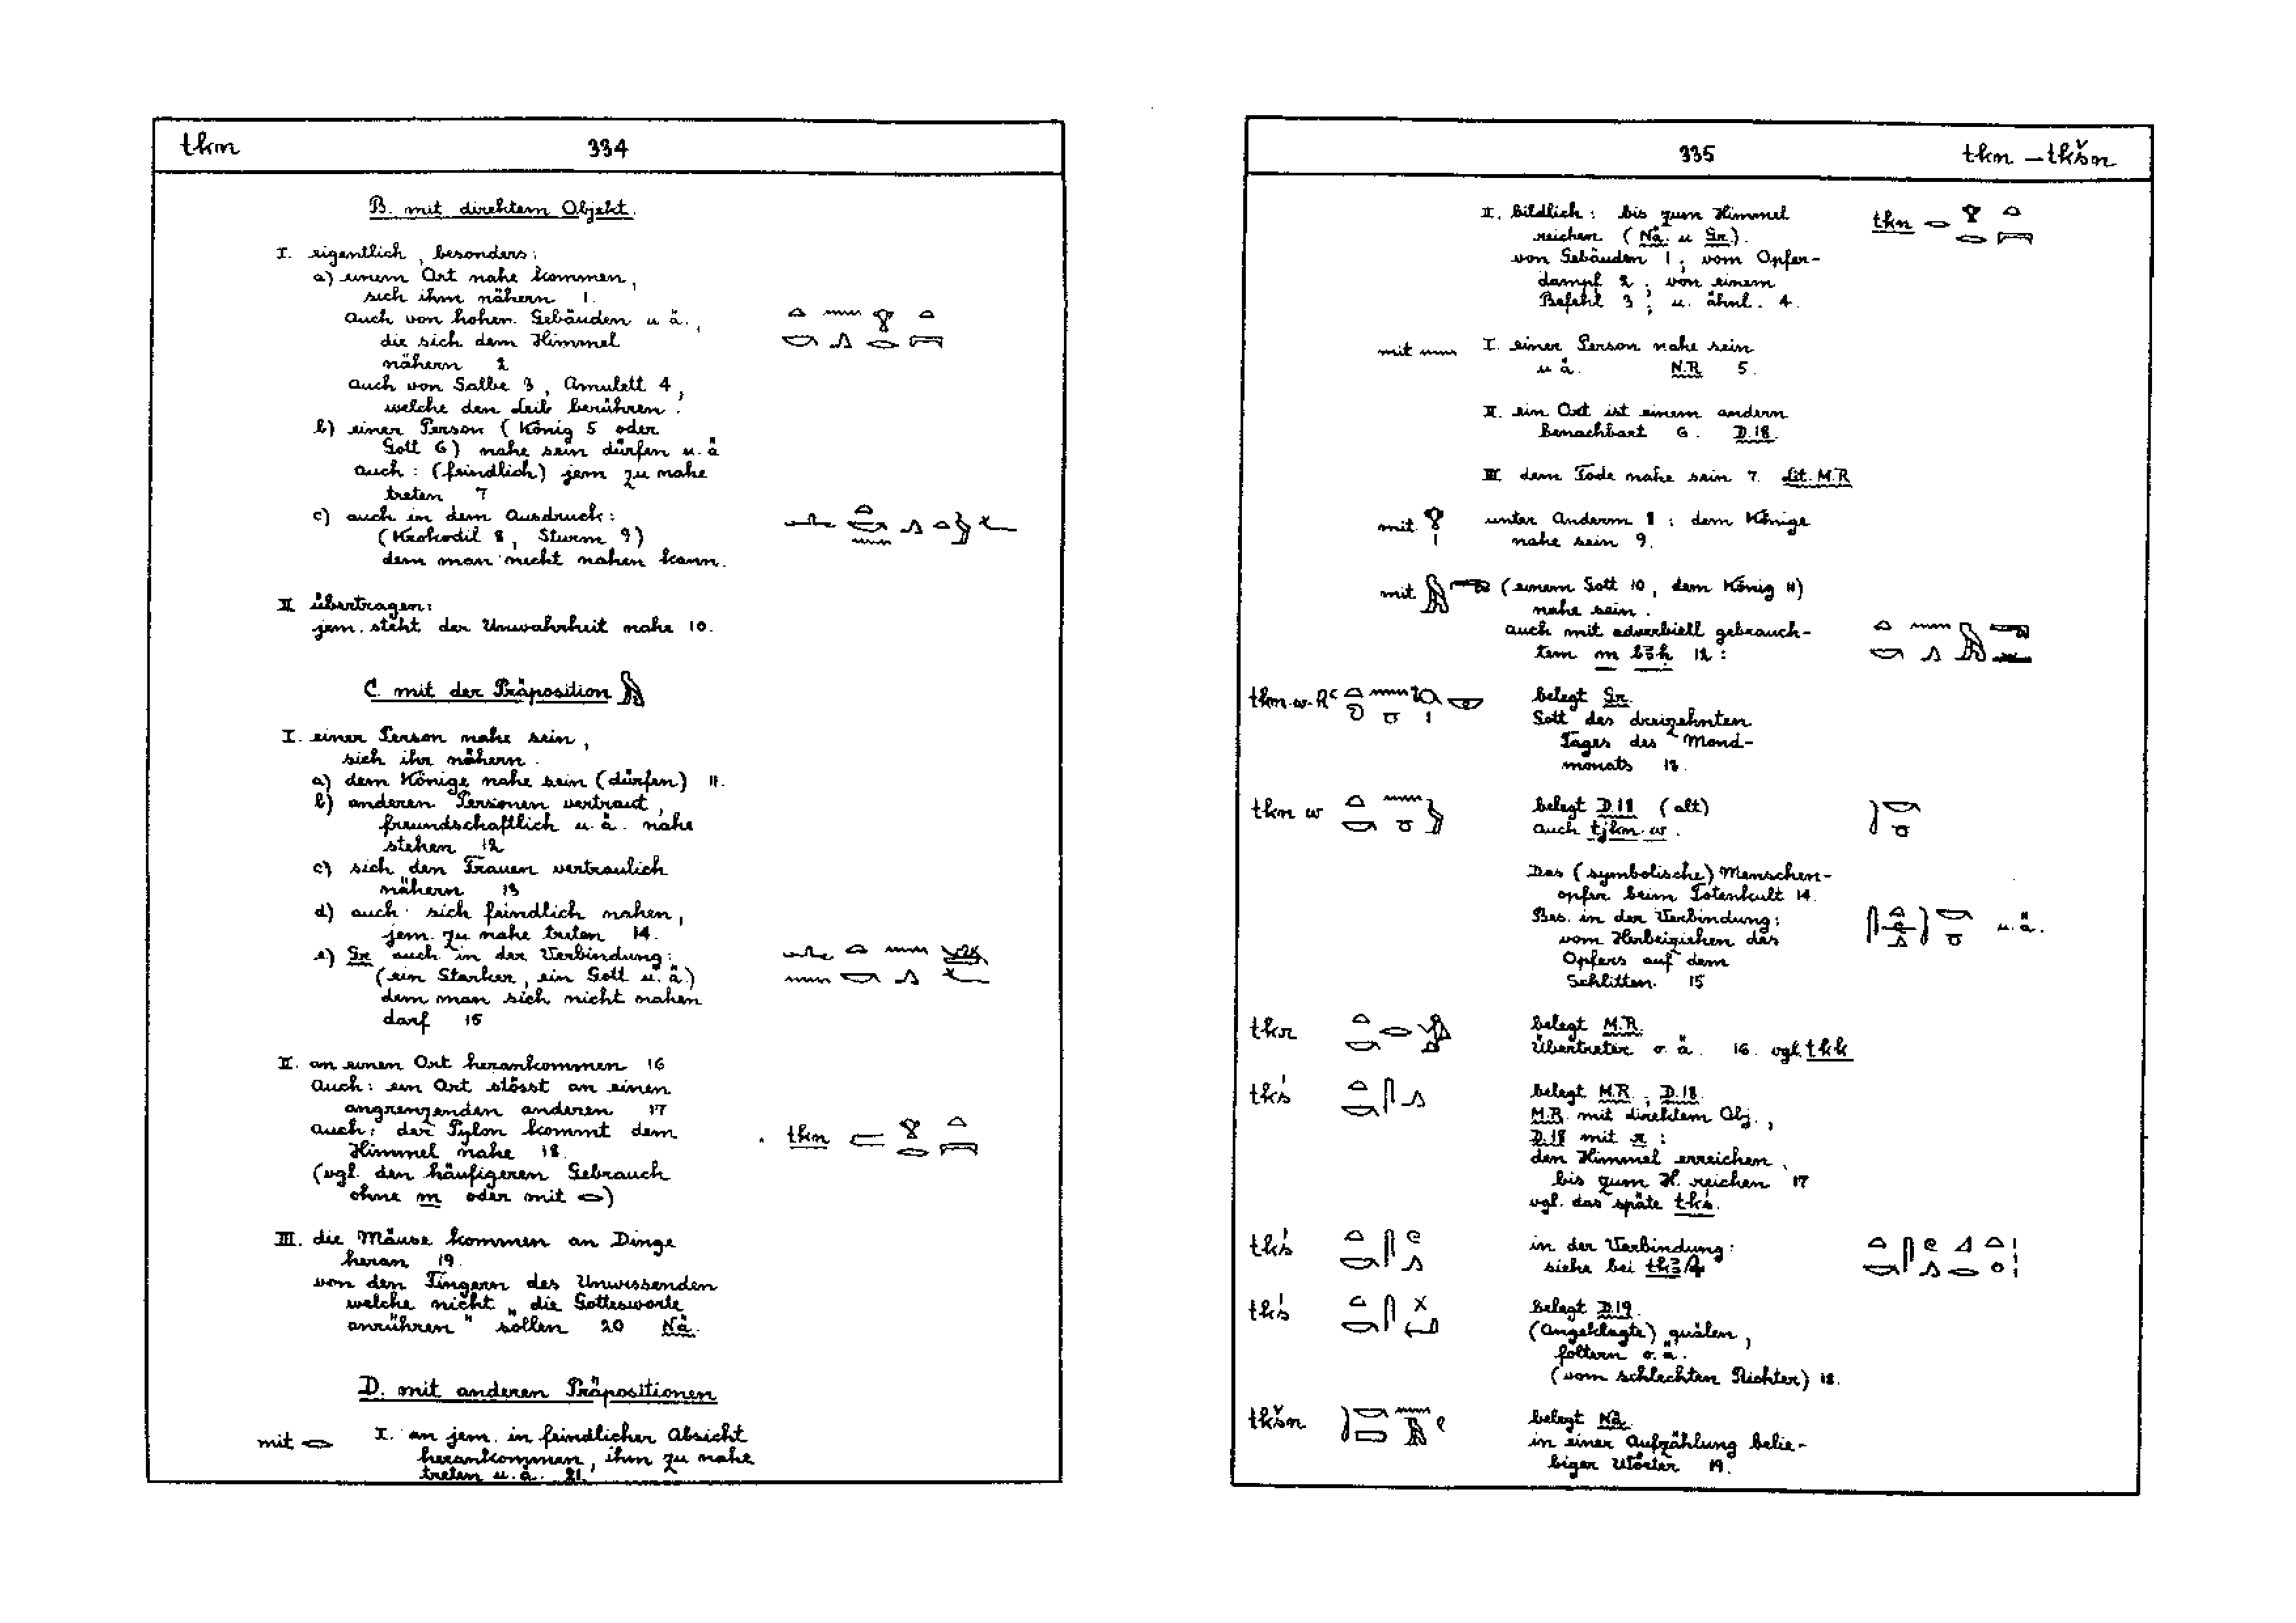 tkn 334
B. mit direktem Objekt.
I. eigentlich, besonders:
a) einem Ort nahe kommen,
sich ihm nähern 1.
auch von hohen Gebäuden u. ä.,
die sich dem Himmel
nähern 2
auch von Salbe 3, Amulett 4,
welche den Leib berühren.
b) einer Person (König 5 oder
Gott 6) nahe sein dürfen u. ä
auch: (feindlich) jem zu nahe
treten 7
c) auch in dem Ausdruck:
(Krokodil 8, Sturm 9)
dem man nicht nahen kann.
II übertragen:
jem. steht der Unwahrheit nahe 10.
C. mit der Präposition 𓅓
I. einer Person nahe sein,
sich ihr nähern.
a) dem Könige nahe sein (dürfen) 11.
b) anderen Personen vertraut,
freundschaftlich u. ä. nahe
stehen 12
c) sich den Frauen vertraulich
nähern 13
d) auch sich feindlich nahen,
jem. zu nahe treten 14.
e) Gr auch in der Verbindung:
(ein Starker, ein Gott u. ä.)
dem man sich nicht nahen
darf 15
II. an einen Ort herankommen 16
Auch: ein Ort stösst an einen
angrenzenden anderen 17
auch: der Pylon kommt dem tkn
Himmel nahe 18.
(vgl. den häufigeren Gebrauch
ohne m oder mit 𓂋)
III. die Mäuse kommen an Dinge
heran 19.
von den Fingern des Unwissenden
welche nicht „die Gottesworte
anrühren" sollen 20 Nä.
D. mit anderen Präpositionen
mit 𓂋 I. an jem. in feindlicher Absicht
herankommen, ihm zu nahe
treten u. ä. 21.
335 tkn – tkšn
II. bildlich: bis zum Himmel tkn 𓂋 𓁷 𓂋 𓏏 𓇯
reichen (Nä. u Gr.).
von Gebäuden 1; vom Opfer-
dampf 2; von einem
Befehl 3; u. ähnl. 4.
mit 𓈖 I. einer Person nahe sein
u ä. N.R. 5.
II. ein Ort ist einem andern
benachbart 6. D.18.
III dem Tode nahe sein 7. Lit. M.R
mit 𓁷𓏤 unter Anderm 8: dem Könige
nahe sein 9.
mit (einem Gott 10, dem König 11)
nahe sein.
auch mit adverbiell gebrauch-
tem m bꜣḥ 12:
tkn.w-Rꜥ belegt Gr.
Gott des dreizehnten
Tages des Mond-
monats 13.
tkn w belegt D.18 (alt)
auch tjkn.w.
Das (symbolische) Menschen-
opfer beim Totenkult 14.
Bes. in der Verbindung: u. ä.
vom Herbeiziehen des
Opfers auf dem
Schlitten. 15
tkr belegt M.R.
Übertreter o. ä. 16. vgl. tkk
tkś 𓏏𓎡𓋴𓂻 belegt M.R., D.18.
M.R. mit direktem Obj.,
D.18 mit r:
den Himmel erreichen,
bis zum H. reichen 17
vgl. das späte tkś.
tkś 𓏏𓎡𓋴𓏲𓂻 in der Verbindung:
siehe bei
tkś belegt D.19.
(Angeklagte) quälen,
foltern o. ä.
(vom schlechten Richter) 18.
tkšn belegt Nä.
in einer Aufzählung belie-
biger Wörter 19.